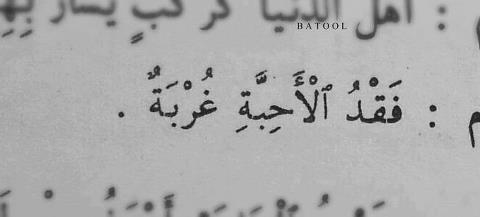 : أهل الدنيا كركب يسار بهم
BATOOL
م : فَقْدُ ٱلْأَحِبَّةِ غُرْبَةٌ .